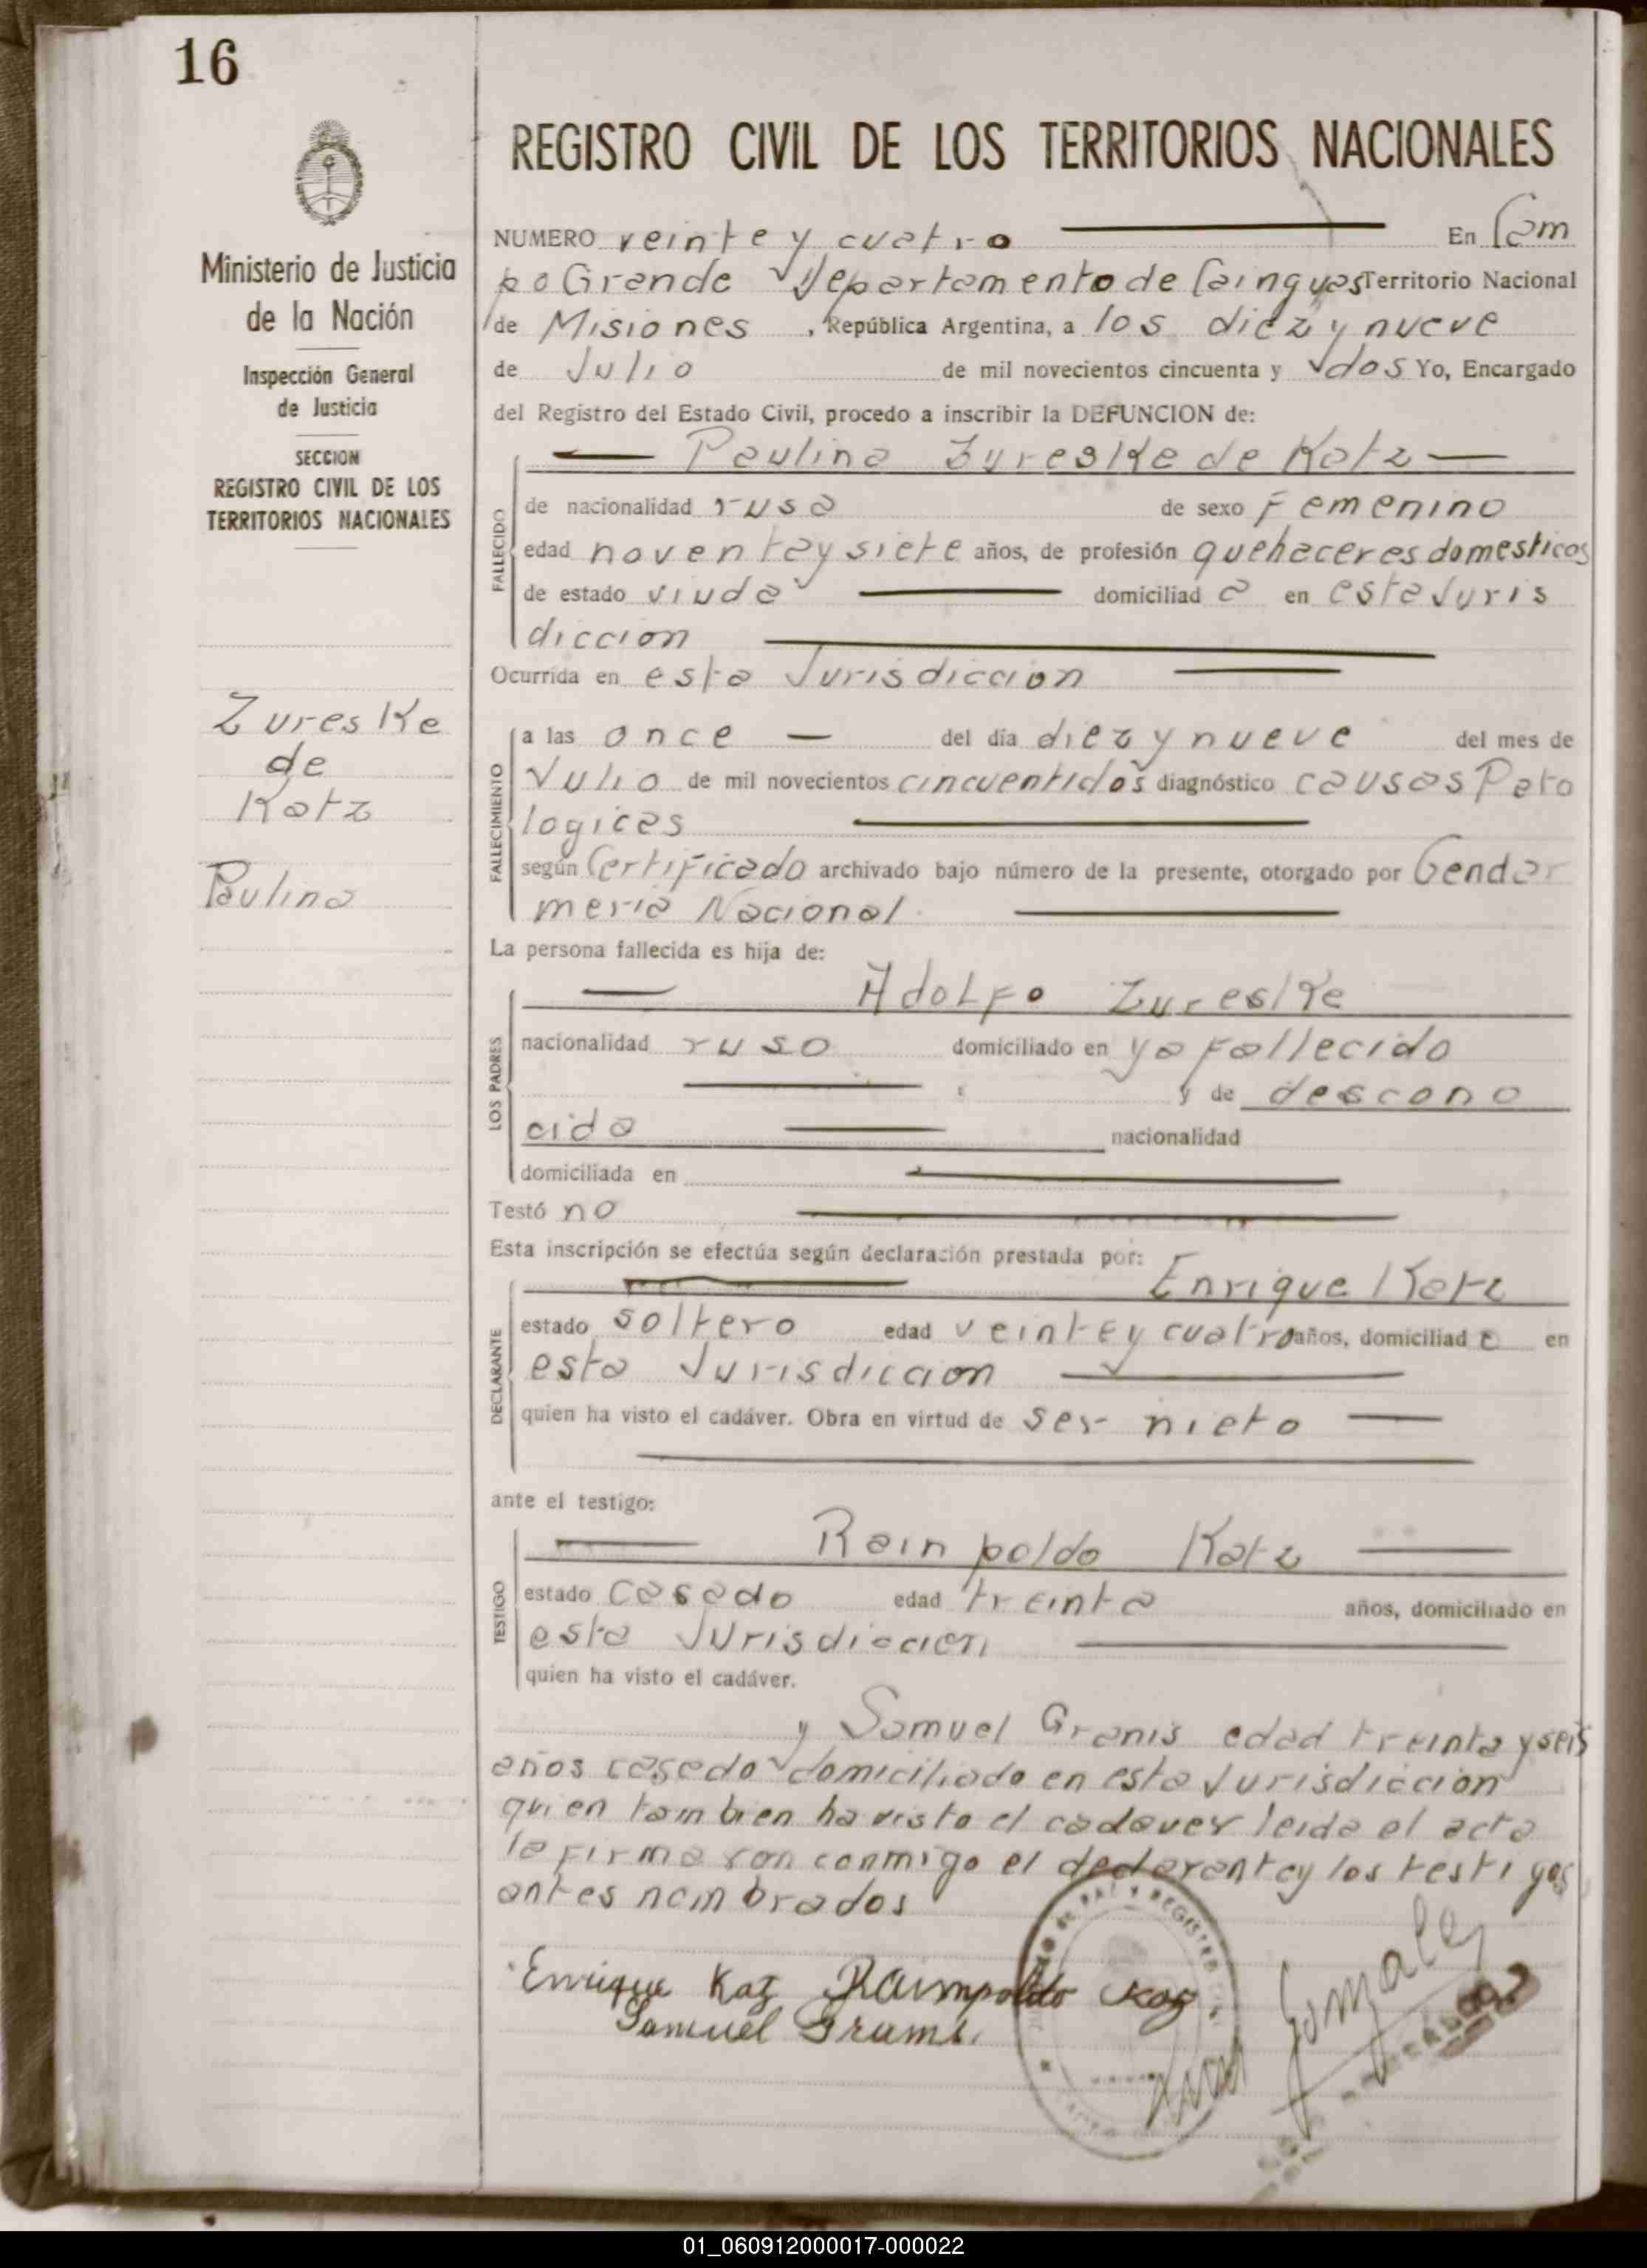 16
Ministerio de Justicia
de la Nación
Inspección General
de Justicia
SECCION
REGISTRO CIVIL DE LOS
TERRITORIOS NACIONALES
Zureske
de
Katz
Paulina
REGISTRO CIVIL DE LOS TERRITORIOS NACIONALES
NUMERO veinte y cuatro En Cam
po Grande Departamento de Cainguas Territorio Nacional
de Misiones, República Argentina, a los diez y nueve
de Julio de mil novecientos cincuenta y dos Yo, Encargado
del Registro del Estado Civil, procedo a inscribir la DEFUNCION de:
Paulina Zureske de Katz
FALLECIDO
de nacionalidad rusa de sexo Femenino
edad noventa y siete años, de profesión quehaceres domesticos
de estado viuda domiciliad a en esta Juris
diccion
Ocurrida en esta Jurisdiccion
FALLECIMIENTO
a las once del día diez y nueve del mes de
Julio de mil novecientos cincuentidos diagnóstico causas Pato
logicas
según Certificado archivado bajo número de la presente, otorgado por Gendar
meria Nacional
La persona fallecida es hija de:
Adolfo Zureske
LOS PADRES
nacionalidad ruso domiciliado en ya fallecido
y de descono
cida nacionalidad
domiciliada en
Testó no
Esta inscripción se efectúa según declaración prestada por:
Enrique Katz
DECLARANTE
estado soltero edad veinte y cuatro años, domiciliad o en
esta Jurisdiccion
quien ha visto el cadáver. Obra en virtud de ser nieto
ante el testigo:
Rainpoldo Katz
TESTIGO
estado casado edad treinta años, domiciliado en
esta Jurisdiccion
quien ha visto el cadáver.
y Samuel Granis edad treinta y seis
años casado domiciliado en esta Jurisdiccion
quien tambien ha visto el cadaver leida el acta
la firma ron conmigo el declarante y los testigos
antes nombrados
Enrique Kaz Raimpoldo Kaz
Samuel
Gonzalez
01_060912000017-000022